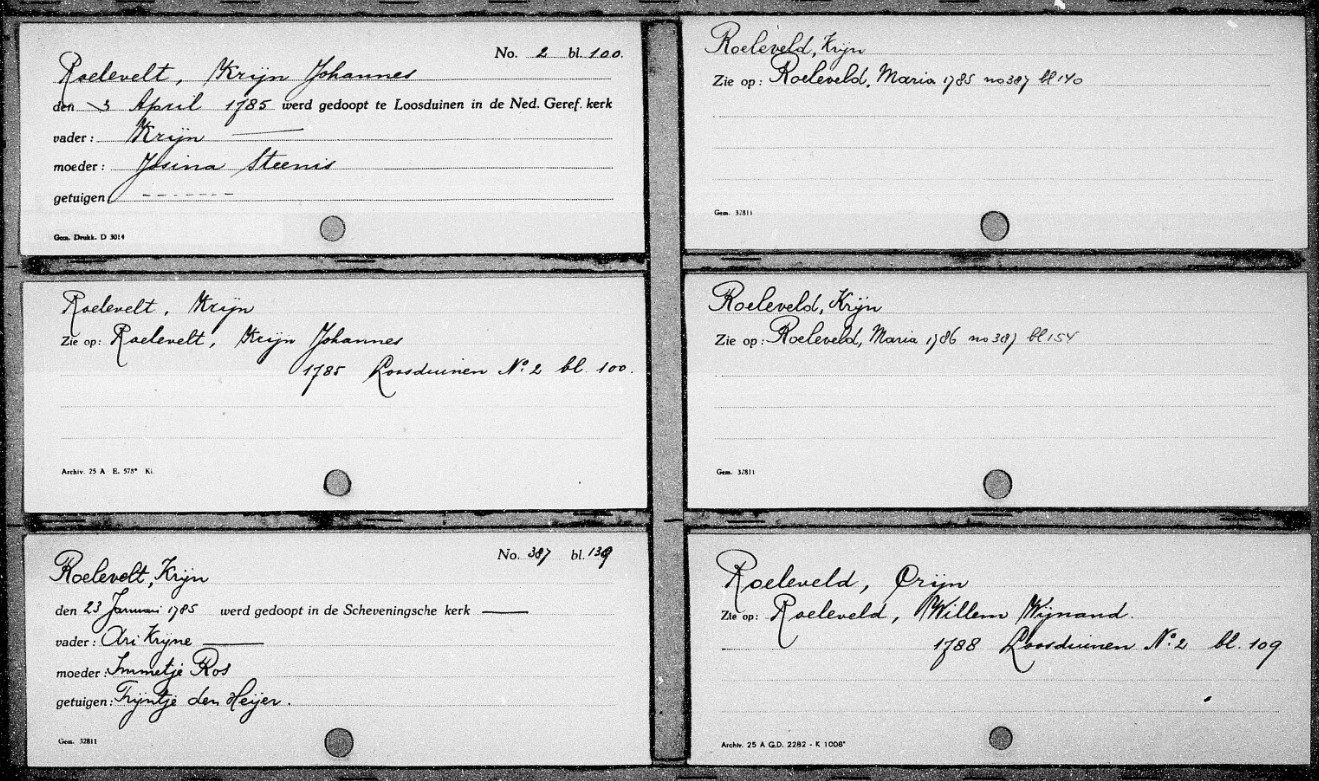 No. 2 bl. 100.
Roelevelt, Krijn Johannes
den 3 April 1785 werd gedoopt te Loosduinen in de Ned. Geref. kerk
vader: Krijn
moeder: Josina Steenis
getuigen
Gem. Drukk. D 3014
Roelevelt, Krijn
Zie op: Roelevelt, Krijn Johannes
1785 Loosduinen No. 2 bl. 100.
Archiv. 25 A E. 578* Ki.
No. 387 bl. 139
Roelevelt, Krijn
den 23 Januari 1785 werd gedoopt in de Scheveningsche kerk
vader: Ari Krijne
moeder: Immetje Ros
getuigen: Trijntje den Heijer.
Gem. 32811
Roeleveld, Krijn
Zie op: Roeleveld, Maria 1785 no 387 bl 140
Gem. 32811
Roeleveld, Krijn
Zie op: Roeleveld, Maria 1786 no 387 bl 154
Gem. 32811
Roeleveld, Crijn
Zie op: Roeleveld, Willem Wijnand.
1788 Loosduinen No. 2 bl. 109
Archiv. 25 A G.D. 2282 - K 1006*